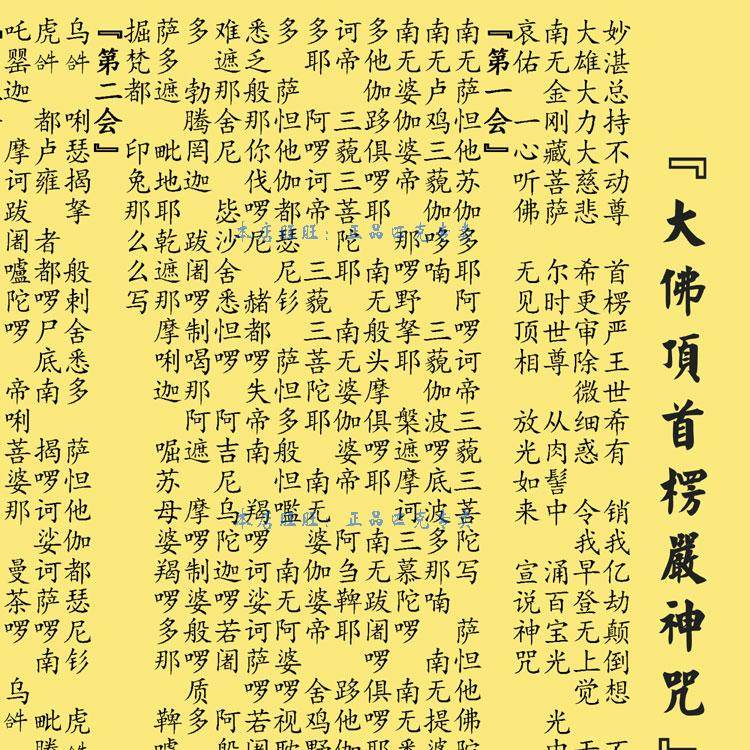 『大佛頂首楞嚴神咒』
妙湛总持不动尊 首楞严王世希有 销我亿劫颠倒想
大雄大力大慈悲 希更审除微细惑 令我早登无上觉
南无金刚藏菩萨 尔时世尊 从肉髻中 涌百宝光 光
哀佑 一心听佛 无见顶相 放光如来 宣说神咒
『第一会』
南无萨怛他苏伽多耶阿啰诃帝三藐三菩陀写 萨怛他佛
南无卢鸡三藐伽哆喃 三藐伽波啰底波多那喃 南无提婆
南无婆伽婆帝 那啰野拏耶 槃遮摩诃三慕陀啰 南无
多他伽跢俱啰耶 南无般头摩俱啰耶 南无跋阇啰俱啰耶
诃帝 三藐三菩陀耶 南无婆伽婆帝 阿刍鞞耶 跢他伽
多耶 阿啰诃帝 三藐三菩陀耶 南无婆伽婆帝 舍鸡野
多 萨怛他伽都瑟尼钐 萨怛多般怛嚂 南无阿婆啰视耽
悉乏般那你伐啰尼 赭都啰失帝南 羯啰诃娑诃萨啰若阇
难遮那舍尼 毖沙舍悉怛啰 阿吉尼乌陀迦啰若阇 阿般
多 勃腾罔迦 跋阇啰制喝那阿遮 摩啰制婆般啰质多
萨多遮 毗地耶乾遮那摩唎迦 啒苏母婆羯啰多那 鞞嚧
掘梵都 印兔那么么写
『第二会』
乌𤙖 唎瑟揭拏 般剌舍悉多 萨怛他伽都瑟尼钐 虎𤙖
虎𤙖 都卢雍 者都啰尸底南 揭啰诃娑诃萨啰南 毗腾
吒罂迦 摩诃跋阇嚧陀啰 帝唎菩婆那 曼茶啰 乌𤙖
本店旺旺：正品
本店旺旺：正品